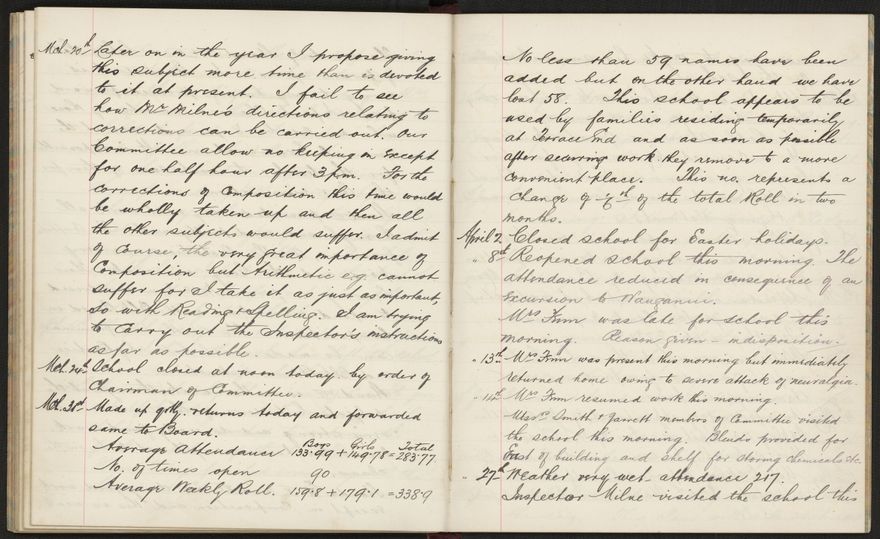 Mch. 20th Later on in the year I propose giving
this subject more time than is devoted
to it at present. I fail to see
how Mr Milne's directions relating to
corrections can be carried out. Our
Committee allow no keeping in except
for one half hour after 3 p.m. For the
corrections of Composition this time would
be wholly taken up and then all
the other subjects would suffer. I admit
of course, the very great importance of
Composition but Arithmetic e.g. cannot
suffer for I take it as just as important,
so with Reading & Spelling. I am trying
to carry out the Inspector's instructions
as far as possible.
Mch. 24th School closed at noon today by order of
Chairman of Committee.
Mch. 31st Made up qrtly. returns today and forwarded
same to Board.
Boys Girls Total
Average Attendance 133.99 + 149.78 = 283.77
No. of times open 90
Average Weekly Roll. 159.8 + 179.1 = 338.9
No less than 59 names have been
added but on the other hand we have
lost 58. This school appears to be
used by families residing temporarily
at Terrace End and as soon as possible
after securing work they remove to a more
convenient place. This no. represents a
change of of the total Roll in two
months.
April 2 Closed school for Easter holidays.
" 8th Reopened school this morning. The
attendance reduced in consequence of an
excursion to Wanganui.
Mrs Finn was late for school this
morning. Reason given - indisposition.
" 13th Mrs Finn was present this morning but immediately
returned home owing to severe attack of neuralgia.
" 14th Mrs Finn resumed work this morning.
Messrs Smith & Jarrett members of Committee visited
the school this morning. Blinds provided for
East of building and shelf for storing chemicals etc.
" 27th Weather very wet - attendance 217.
Inspector Milne visited the school this